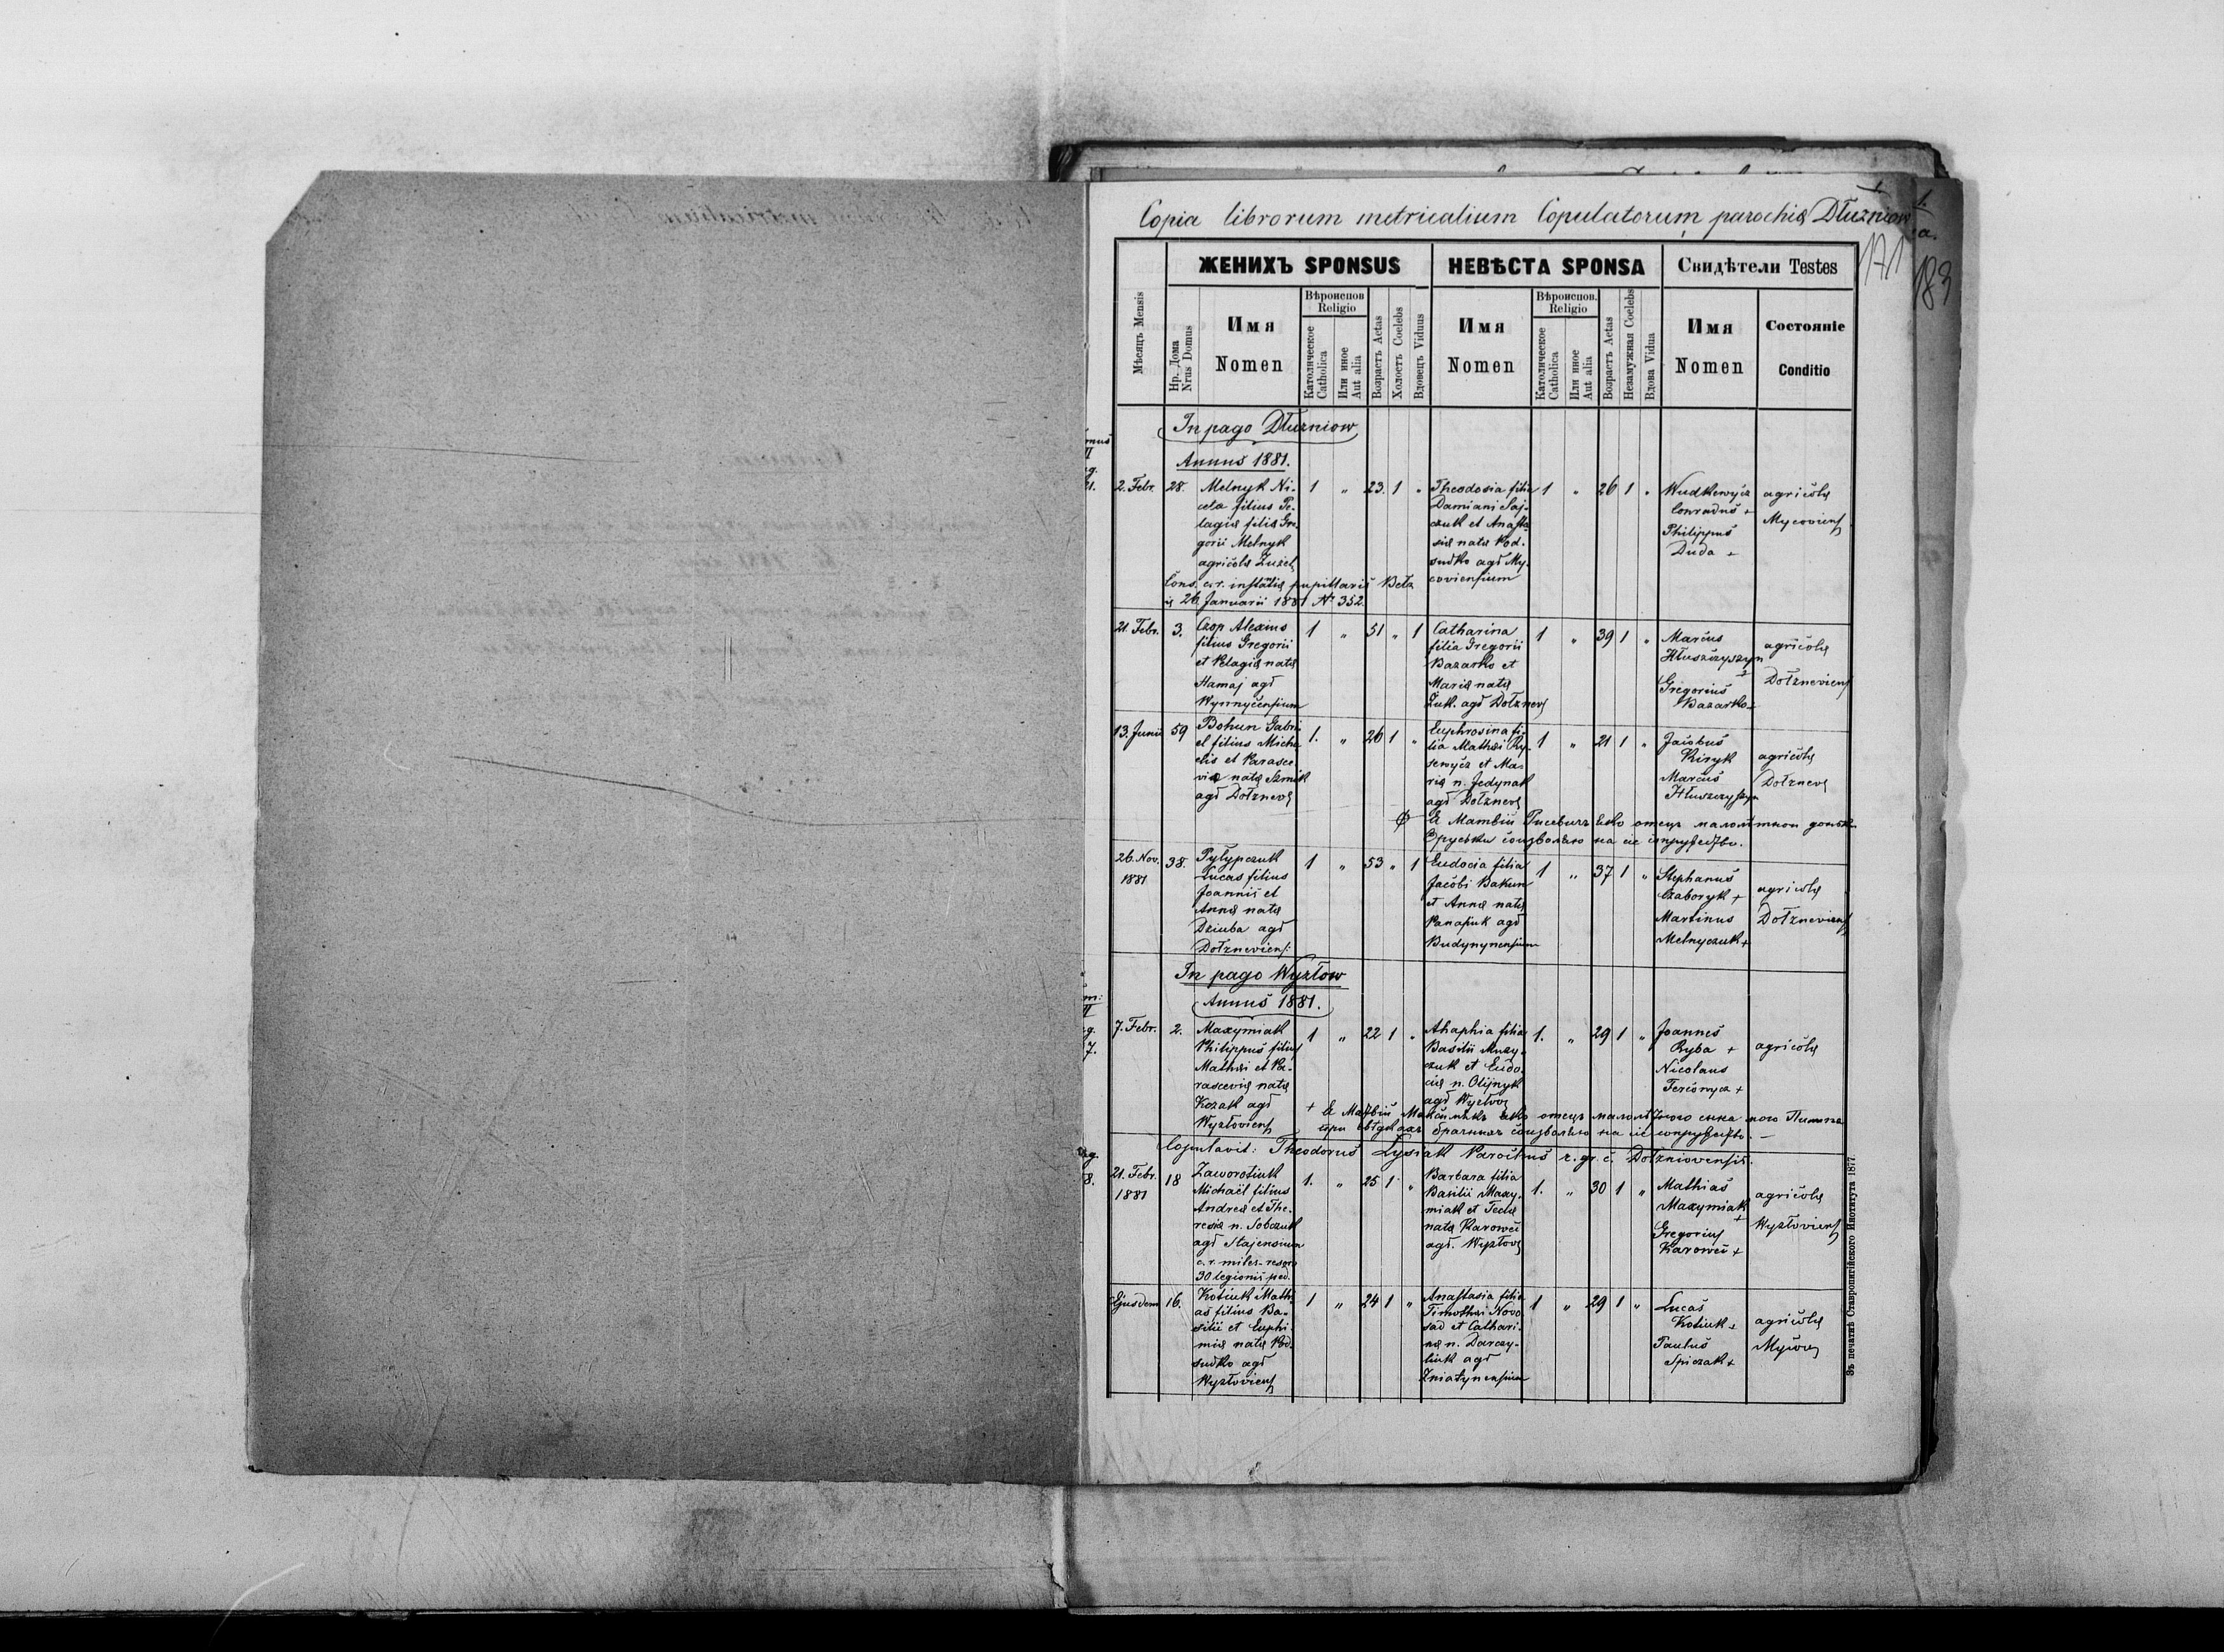 Copia librorum metricalium Copulatorum parochiæ Dłużniow
171
183
ЖЕНИХЪ SPONSUS
НЕВѢСТА SPONSA
Свидѣтели Testes
Мѣсяцъ Mensis
Нр. Дома
Nrus Domus
Имя
Nomen
Вѣроиспов
Religio
Католическое
Catholica
Или иное
Aut alia
Возрастъ Aetas
Холостъ Coelebs
Вдовецъ Viduus
Имя
Nomen
Вѣроиспов.
Religio
Католическое
Catholica
Или иное
Aut alia
Возрастъ Aetas
Незамужная Coelebs
Вдова Vidua
Имя
Nomen
Состояніе
Conditio
In pago Dłużniow
Annus 1881.
2. Febr. 28.
Melnyk Ni-
cola filius Pe-
lagiæ filiæ Gre
gorii Melnyk
agricolæ
1 " 23. 1 "
Theodosia filia
Damiani Saj-
czuk et Anasta
siæ natæ Pod-
sudko agr My-
coviensium
1 " 26 1 "
Wudkewycz
Conradus +
Philippus
Duda +
agricolæ
Mycoviens
Cons. c.r. instātiæ pupillaris Bełz
26 Januarii 1881 No 352.
21. Febr. 3.
Czop Alexius
filius Gregorii
et Pelagiæ natæ
Hamaj agr
1 " 51 " 1
Catharina
filia Gregorii
Bazarko et
Mariæ natæ
Żuk. agr Dołznev
1 " 39 1 "
Marcus
Hłuszczyszyn
+
Gregorius
Bazarko +
agricolæ
Dołzneviens
13. Junii 59
Bohun Gabri
el filius Micha
elis et Parasce
viæ natæ
agr Dołznev
1. " 26 1 "
Euphrosina fi-
lia Mathæi Ry-
sewycz et Ma-
riæ n. Jedynak
agr Dołznev
1 " 21 1 "
Jacobus
Kiryk
Marcus
Hłuszczyszyn
agricolæ
Dołznev
отець
на
26. Nov.
1881
38.
Pyłypczuk
Lucas filius
Joannis et
Annæ natæ
Dziuba agr
Dołzneviens:
1 " 53 " 1
Eudocia filia
Jacobi Bakun
et Annæ natæ
Panasiuk agr
Budynynensium
1 " 37 1 "
Stephanus
Czaboryk +
Martinus
Melnyczuk +
agricolæ
Dołzneviens
In pago Wyżłow
Annus 1881.
7. Febr. 2.
Maxymiak
Philippus filius
Mathæi et Pa-
rasceviæ natæ
Kozak agr
Wyżłoviens
1 " 22 1 "
Ahaphia filia
Basilii Muzy-
czuk et Eudo-
ciæ n. Olijnyk
agr
1. " 29 1 "
Joannes
Ryba +
Nicolaus
agricolæ
отець
на
Copulavit: Theodorus Łysiak Parochus r. gr. c. Dołzniovensis.
21. Febr.
1881
18
Zaworotiuk
Michaël filius
Andreæ et The-
resiæ n. Sobczuk
agr Stajensium
c.r. miles
30 legionis ped.
1. " 25 1 "
Barbara filia
Basilii Maxy-
miak et Teclæ
natæ Karoweć
agr. Wyżłov
1. " 30 1 "
Mathias
Maxymiak
+
Gregorius
Karoweć +
agricolæ
Wyżłoviens
Ejusdem 16.
Kotiuk Mathi
as filius Ba-
silii et Euphi-
miæ natæ Pod-
sudko agr
Wyżłoviens
1 " 24 1 "
Anastasia filia
Timothei Novo
sad et Cathari-
næ n. Darczy-
liuk agr
Żniatynensium
1 " 29 1 "
Lucas
Kotiuk +
Paulus
Spiczak +
agricolæ
Mycov
Въ печатнѣ Ставропигійского Института 1877